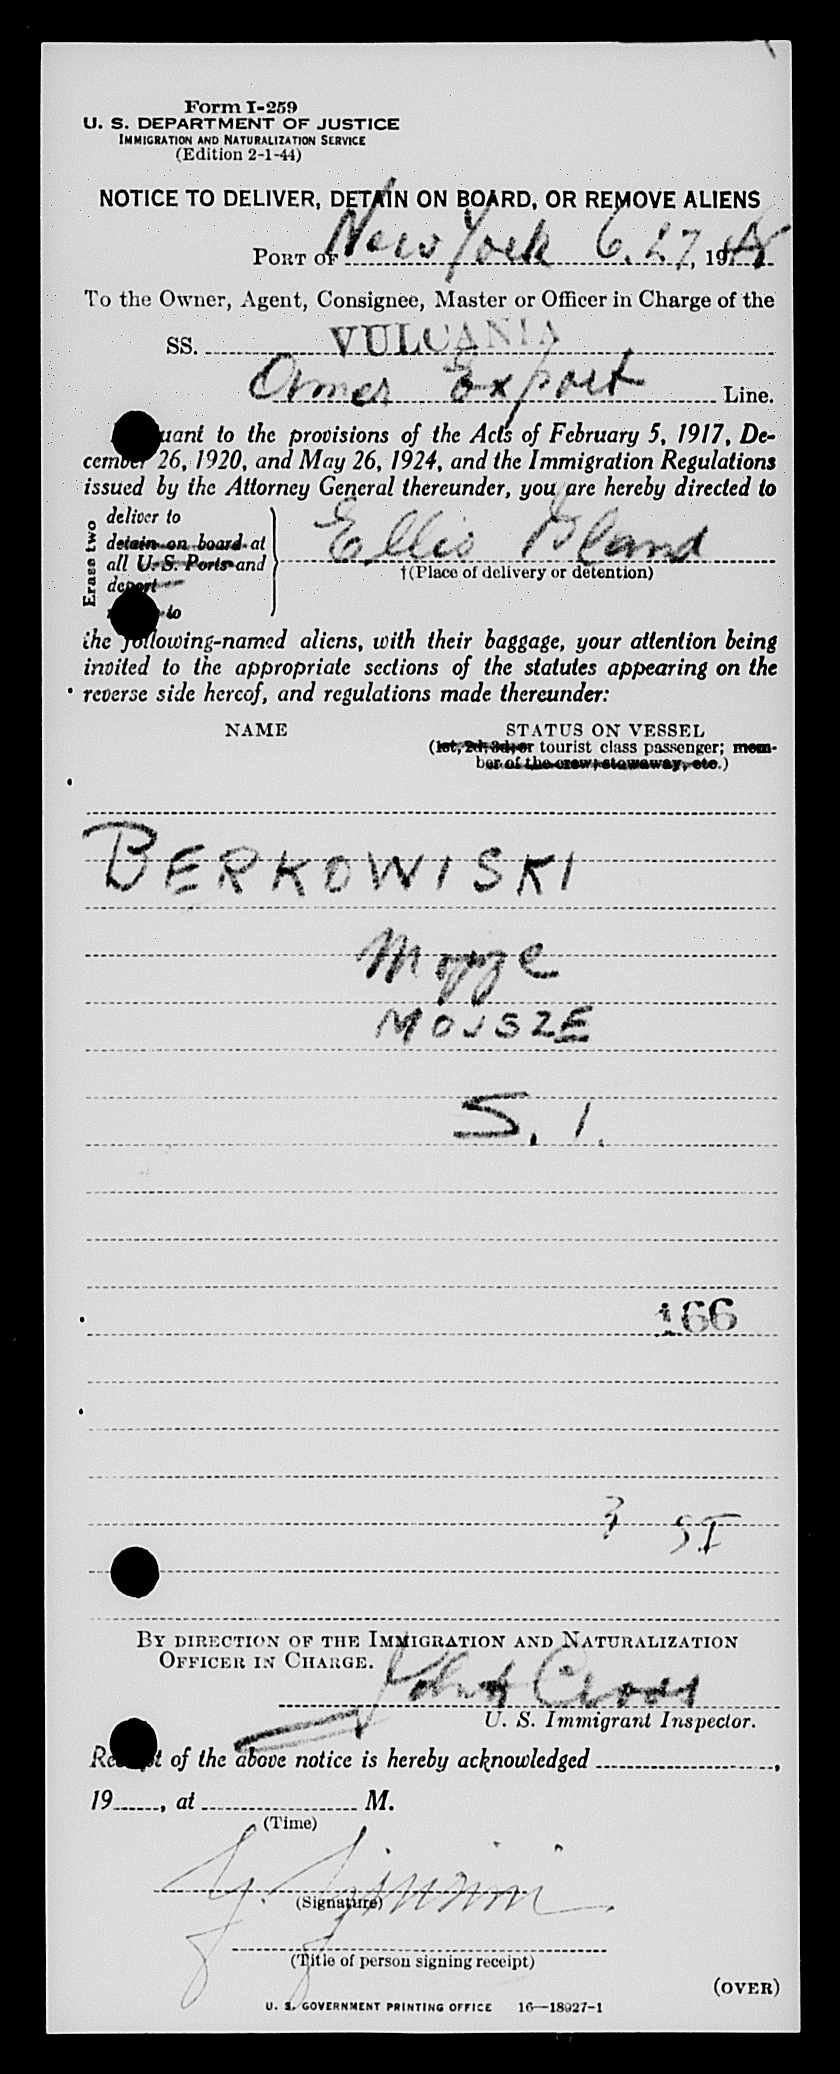 Form I-259
U. S. DEPARTMENT OF JUSTICE
IMMIGRATION AND NATURALIZATION SERVICE
(Edition 2-1-44)
NOTICE TO DELIVER, DETAIN ON BOARD, OR REMOVE ALIENS
PORT OF New York 6.27, 19
To the Owner, Agent, Consignee, Master or Officer in Charge of the
SS. VULCANIA
Amer Export Line.
uant to the provisions of the Acts of February 5, 1917, De-
cember 26, 1920, and May 26, 1924, and the Immigration Regulations
issued by the Attorney General thereunder, you are hereby directed to
Erase two
deliver to
detain on board at
all U. S. Ports and
deport
to
Ellis Island
†(Place of delivery or detention)
the following-named aliens, with their baggage, your attention being
invited to the appropriate sections of the statutes appearing on the
reverse side hereof, and regulations made thereunder:
NAME STATUS ON VESSEL
(1st, 2d, 3d, or tourist class passenger; mem-
ber of the crew, stowaway, etc.)
BERKOWISKI
MOJSZE
S. I.
166
? SI
BY DIRECTION OF THE IMMIGRATION AND NATURALIZATION
OFFICER IN CHARGE.
U. S. Immigrant Inspector.
Receipt of the above notice is hereby acknowledged ,
19 , at M.
(Time)
(Signature)
(Title of person signing receipt)
(OVER)
U. S. GOVERNMENT PRINTING OFFICE 16—18927-1